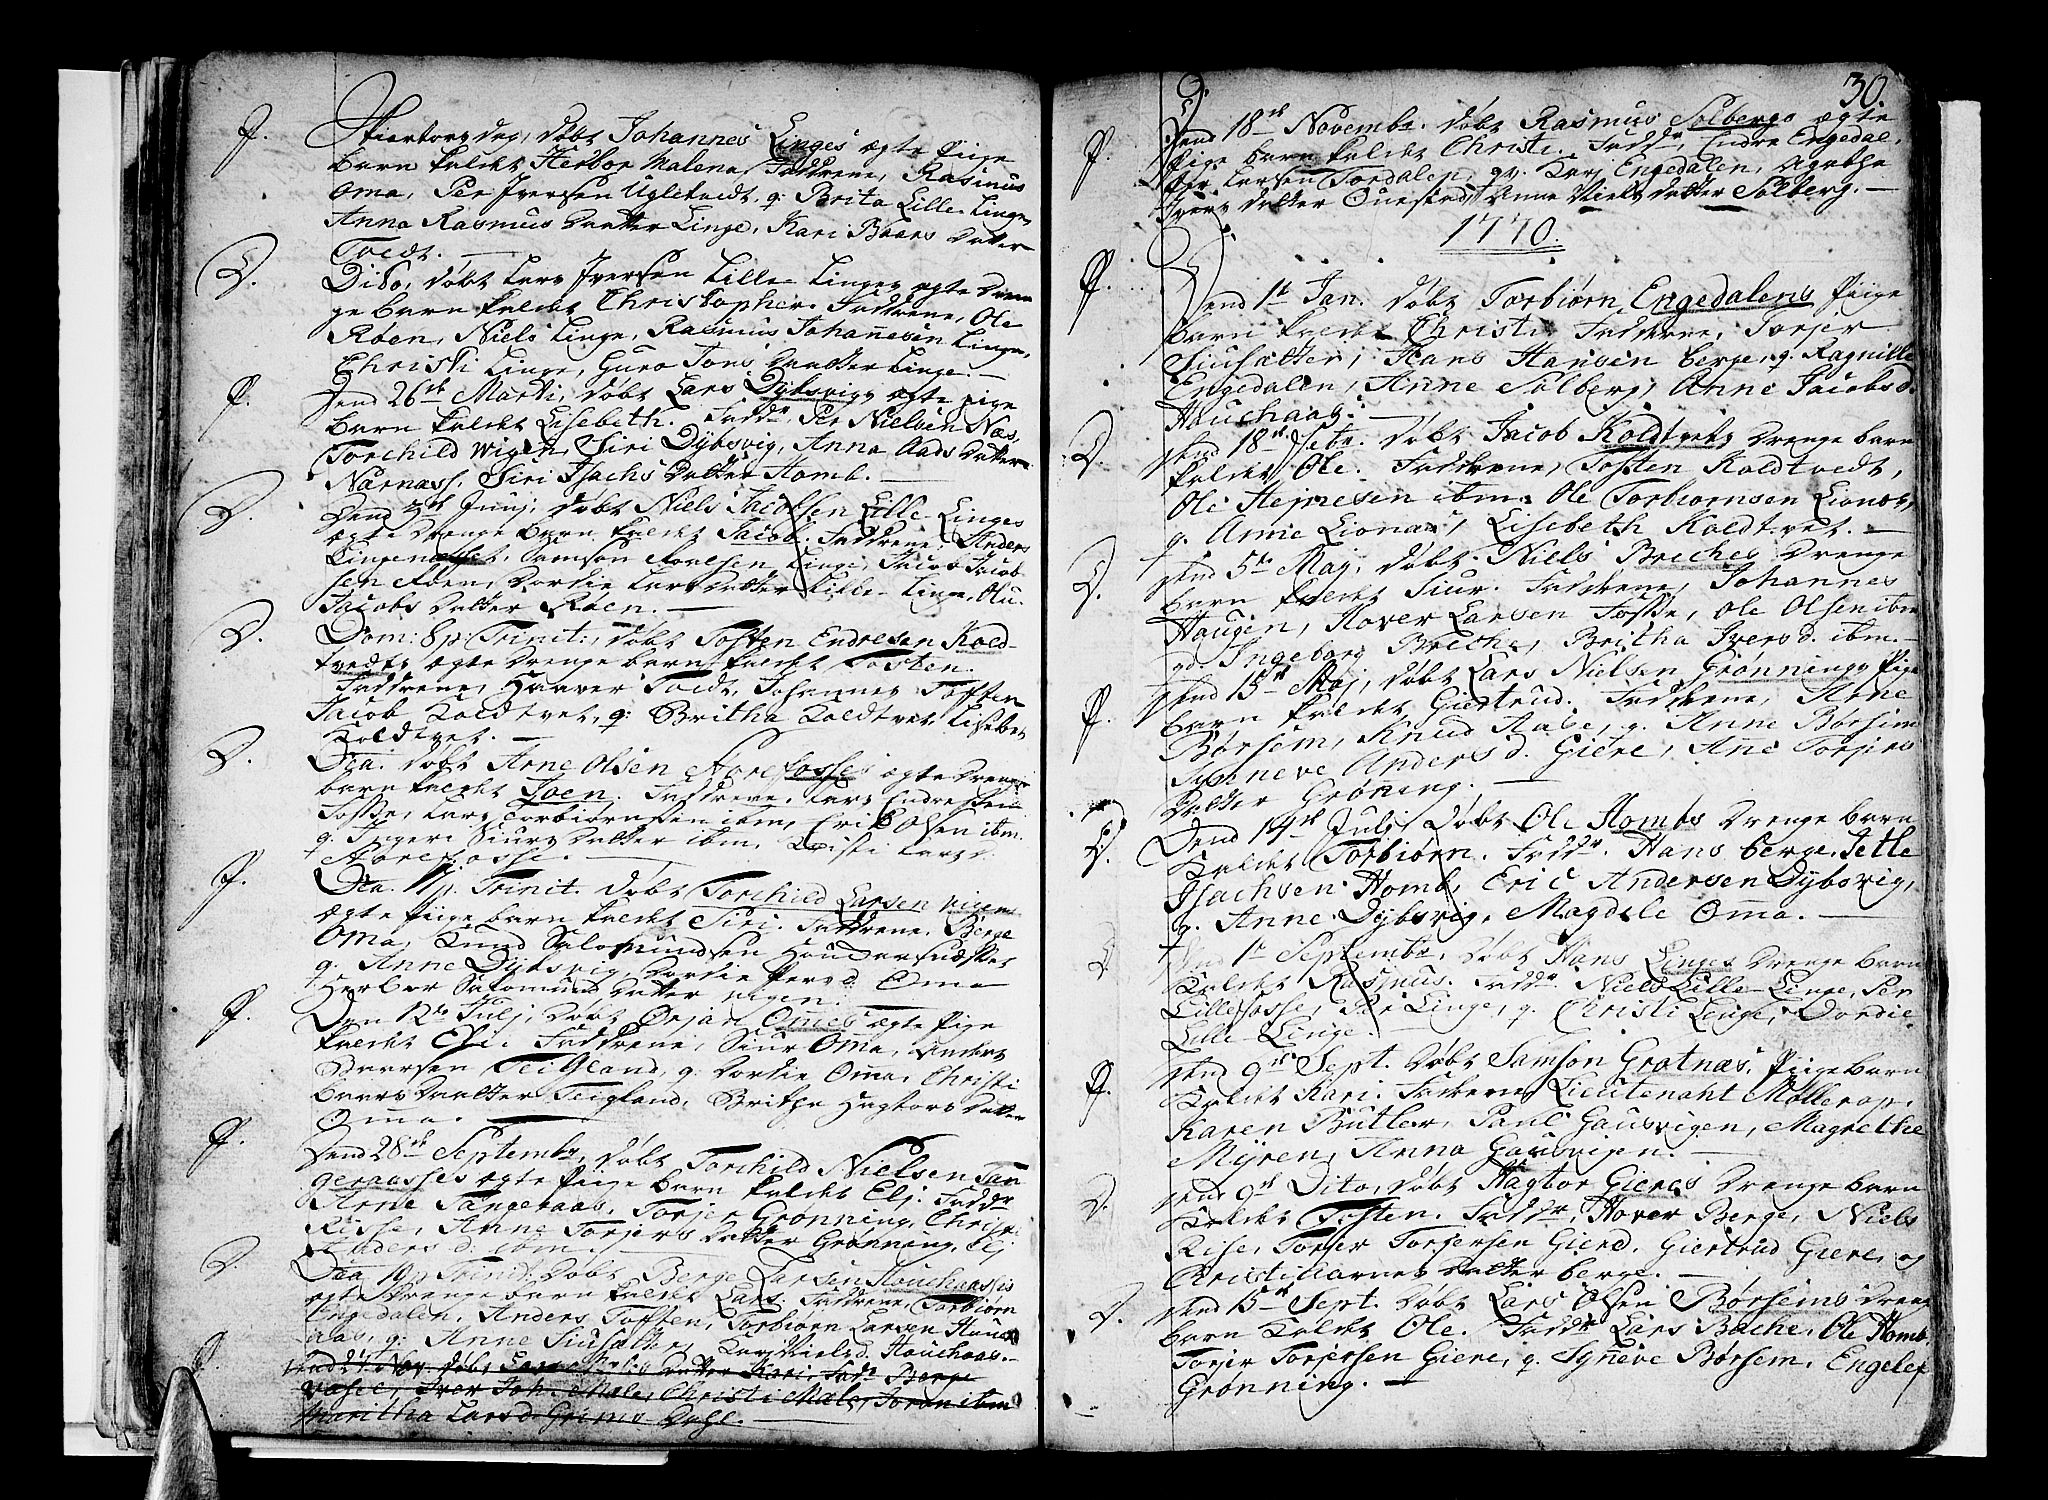 P. Skiertorsdag, døbt Johannes Linges ægte Pige
barn kaldet Herbor Malena, Faddrene, Rasmus
Oma, Per Iversen Ugletvedt, q: Brita Lille Linge,
Anna Rasmus Datter Linge, Kari Baars Datter
Toedt.
D. Dito, døbt Lars Iversen Lille Linges ægte Dren
ge barn kaldet Christopher. Faddrene, Ole
Røen, Niels Linge, Rasmus Johanesen Linge,
Christi Linge, Guro Jons Daatter Linge.
P. Dend 26de Marti, døbt Lars Dybsvigs ægte pige
barn kaldet Lisebeth. Fadd: Per Nielsen Næs,
Torchild Wigen, Siri Dybsvig, Anna Aads Datter
Nærnæss, Siri Isachs Datter Homb.
D. Dend Junj, døbt Niels Jacobsen Lille Linges
ægte Drenge barn kaldet Jacob. Faddrene, Anders
Samson Linge, Jacob Jacob-
sen Røen, Dordie Lars Datter Lille Linge, Olu
Jacobs Datter Røen.
D. Dom: 8 p: Trinit:, døbt Tosten Endresen Kold-
tvedts ægte Drenge barn kaldet Tosten.
Faddrene, Haaver Toedt, Johannes Toften
Jacob Koldtvet, q: Britha Koldtvet Lisebet
Koldtvet.
D. Dca. døbt Arne Olsen Aarefosses ægte Drenge
barn kaldet Joen. Faddrene, Lars Endresen
Fosse, Lars Torbiørnsen ibm, Erik Olsen ibm.
q. Ingeri Siurs Datter ibm, Cristi Larsd.
Aarefosse.
P. Dca. 11 p. Trinit. døbt Torchild Larsen vigens
ægte Pige barn kaldet Siri. Faddrene, Berge
Oma, Knud Salomundsen
q. Anne Dybsvig, Dordie Persd. Oma
Herbor Salomunds Datter vigen.
P. Den 12te Julj, døbt Ørjan Omes ægte Pige
kaldet Eli. Faddrene, Siur Oma, Anders
Baarsen Teigland, q: Dordie Oma, Christi
Baars Daatter Teigland, Britha Hagtors Datter
Oma.
P. Dend 28de Septembr, døbt Torchild Nielsen Tan
geraasses ægte Pige barn kaldet Elj. Faddr
Arne Tangeraas, Torjer Grønning, Christ
Risse, Anne Torjers Datter Grønning, Elj
Anders d: ibm.
D. Dca 19 p Trinit. Døbt Berge Larsen Houchaassis
ægte Drenge barn kaldet Lars. Faddrene, Torbiørn
Engedalen, Anders Toften, Torbiørn Larsen Houc
aas, q: Anne Siusætter, Kari Nielsd. Houchaas.
Dend Nov. døbt Kari, Fadr Berge
Iver Joh. Male, Christi Male, ibm
Maritha Larsd. Grimo Dahl.
30.
P. Dend 18de Novembr. døbt Rasmus Solbergs ægte
Pige barn kaldet Christi. Faddr, Endre Engedal,
Per Larsen Tordalen, qv. Kari Engedalen, Agatha
Ivers datter Anne Niels datter Solberg.
1770.
P. Dend 1t Jan. døbt Torbiørn Engedalens Piige
barn kaldet Christi Faddrene, Torjer
Siusætter, Hans Hansen berge, q. Ragnille
Engedalen, Anne Solberg, Anne Jacobsd.
Houchaas.
D. dend 18de døbt Jacob Koldtvets Drenge barn
kaldet Ole. Faddrene, Tosten Koldtvedt,
Ole ibm. Ole Torbiørnsen Lionæs,
q. Anne Lionæs, Lisebeth Koldtvet.
D. dend 5te Maj, døbt. Niels Breches Drenge
barn kaldet Siur. Faddrene, Johannes
Haugen, Haver Larsen Fosse, Ole Olsen ibm
qd. Ingeborg Breche, Britha Ivers d. ibm.
P. dend 15de Maj, døbt Lars Nielsen Grønnings Pige
barn kaldet Giertrud. Faddrene, Arne
Børsem, Knud Aase, q. Anne Børsim
Synneve Anders d. Giere, Ane Torjers
Datter Grøning.
D. Dend 14de Julj Døbt Ole Hombs Drenge barn
Kaldet Torbiørn. Faddr. Hans berge, Jetle
Isachsen Homb, Eric Andersen Dybsvig,
q. Anne Dybsvig, Magdele Oma.
D. Dend 1t Septembr, døbt Hans Linges Drenge barn
Kaldet Rasmus. Faddr. Niels Lille Linge, Per
Lillefosse, Per Linge, q. Christi Linge, Dordie
Lille Linge.
P. dend 9de Sept. Døbt Samson Grotnæs, Piige barn
Kaldet Kari. Fadrene, Lieutenant Møllerop,
Karen Butler, Paul Gausvigen, Magrethe
Myren, Anna Gausvigen.
D. dend 9de Dito, døbt Hagtor Gieres Drenge barn
Kaldet Tosten. Faddr, Hover Berge, Niels
Rise, Torjer Torjersen Giere, Giertrud Giere, og
Christi Aarnes datter berge.
D. dend 15de Sept. Døbt Lars Olsen Børsems Dreng
barn Kaldet Ole. Faddr Lars Bache, Ole Homb
Torjer Torjersen Giere, q. Synneve Børsem, Engelef
Grønning.